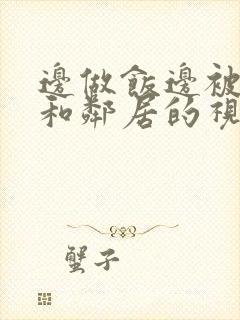 邊做飯邊被
和鄰居的視
蟹子